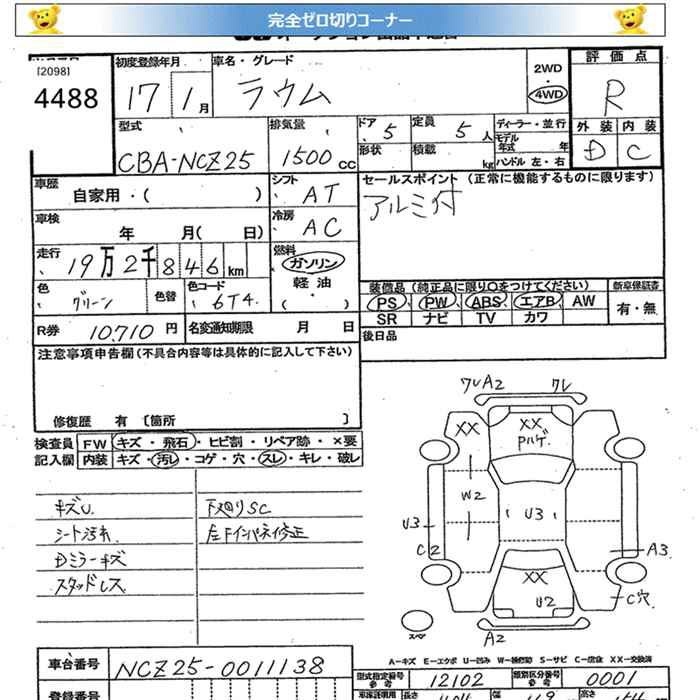 完全ゼロ切りコーナー
[2098]
4488
初度登録年月
17 1月
車名・グレード
ラウム
2WD
4WD
評価点
R
外装 内装
D C
型式
CBA-NCZ25
排気量
1500cc
ドア 5
形状
定員 5人
積載 kg
ディーラー・並行
モデル年式 年
ハンドル 左・右
車歴
自家用・( )
シフト AT
セールスポイント (正常に機能するものに限ります)
アルミ付
車検
年 月( 日)
冷房 AC
走行
19万2千846km
燃料
ガソリン
軽油
・( )
色
グリーン
色替
色コード
6T4
装備品 (純正品に限り○をつけてください)
PS PW ABS エアB AW
SR ナビ TV カワ
新車保証書
有・無
R券 10,710円
名変通知期限 月 日
後日品
注意事項申告欄(不具合内容等は具体的に記入して下さい)
修復歴 有 〔箇所 〕
検査員記入欄
FW キズ・飛石・ヒビ割・リペア跡・×要
内装 キズ・汚レ・コゲ・穴・スレ・キレ・破レ
キズU
シート汚れ
Dミラーキズ
スタッドレス
下廻りSC
左Fインパネ修正
ワレA2 ワレ
XX
XX
Pハゲ
W2
U3
U3
C2
A3
XX
U2
C穴
A2
スペア
A-キズ E-エクボ U-凹み W-補修跡 S-サビ C-腐食 XX-交換済
車台番号 NCZ25-0011138
型式指定番号 参考 12102
類別区分番号 参考 0001
登録番号
車家証明用 長さ